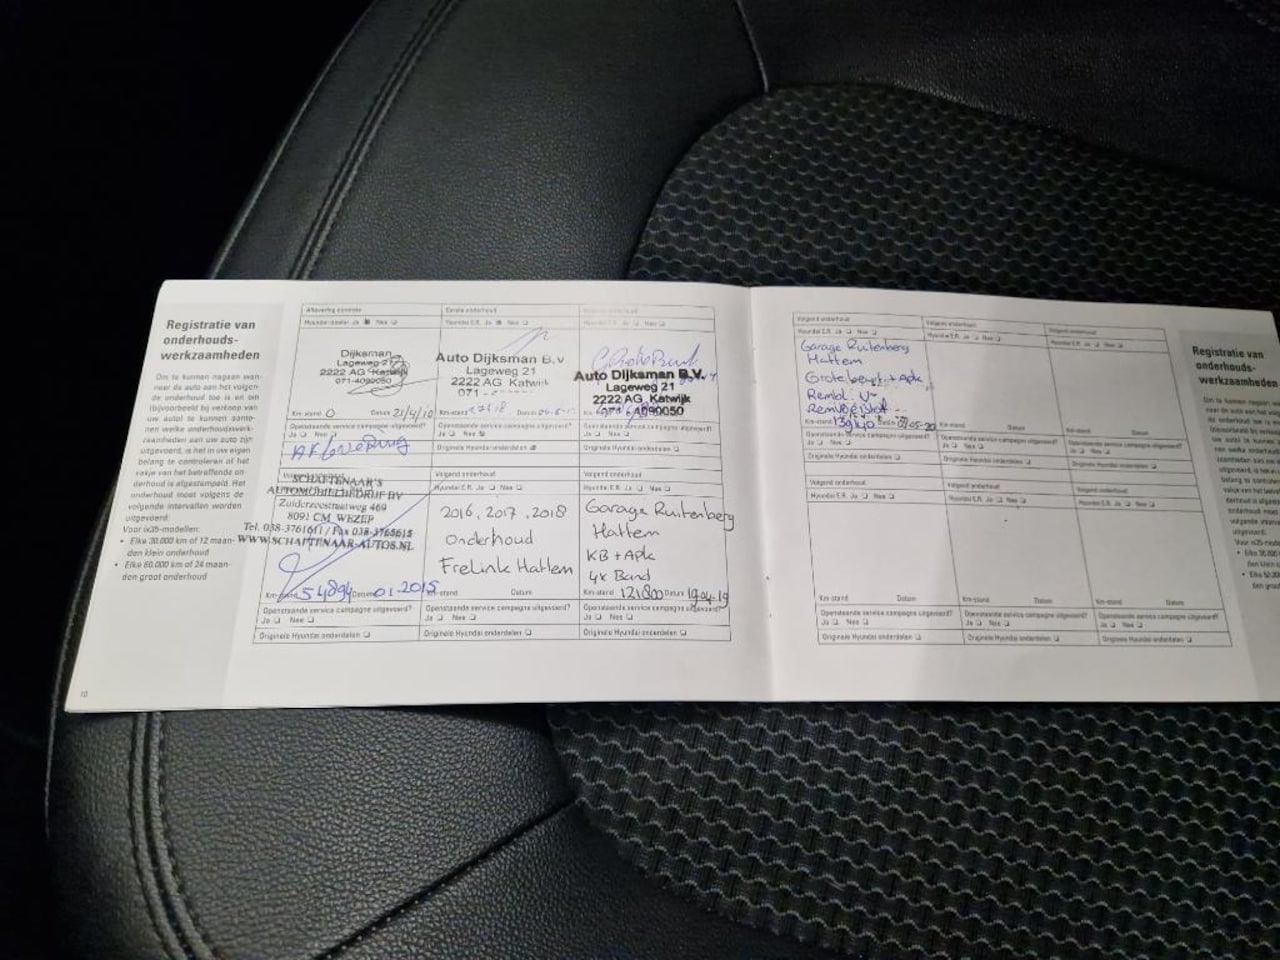 Registratie van
onderhouds-
werkzaamheden
Om te kunnen nagaan wan-
neer de auto aan het volgen-
de onderhoud toe is en om
(bijvoorbeeld bij verkoop van
uw auto) te kunnen aanto-
nen welke onderhoudswerk-
zaamheden aan uw auto zijn
uitgevoerd, is het in uw eigen
belang te controleren of het
vakje van het betreffende on-
derhoud is afgestempeld. Het
onderhoud moet volgens de
volgende intervallen worden
uitgevoerd:
Voor ix35-modellen:
• Elke 30.000 km of 12 maan-
den klein onderhoud
• Elke 60.000 km of 24 maan-
den groot onderhoud
10
Aflevering controle
Ja Nee
Dijksman
Lageweg 21
2222 AG Katwijk
071-4090050
Km-stand 0 Datum 21/4/10
Openstaande service campagne uitgevoerd?
Ja Nee
Aflevering
Eerste onderhoud
Hyundai E.R. Ja Nee
Auto Dijksman B.V
Lageweg 21
2222 AG Katwijk
071 -
Km-stand Datum
Openstaande service campagne uitgevoerd?
Ja Nee
Originele Hyundai-onderdelen
onderhoud
Hyundai E.R. Ja Nee
Auto Dijksman B.V.
Lageweg 21
2222 AG Katwijk
071-4090050
Openstaande service campagne uitgevoerd?
Ja Nee
Originele Hyundai-onderdelen
SCHAFTENAAR'S
AUTOMOBIELBEDRIJF BV
Zuiderzeestraatweg 469
8091 CM WEZEP
Tel. 038-3761611 / Fax 038-3765615
WWW.SCHAFTENAAR-AUTOS.NL
Km-stand 54894 Datum 01-2015
Openstaande service campagne uitgevoerd?
Ja Nee
Originele Hyundai onderdelen
Volgend onderhoud
Hyundai E.R. Ja Nee
2016, 2017, 2018
Onderhoud
Frelink Hattem
Km-stand Datum
Openstaande service campagne uitgevoerd?
Ja Nee
Originele Hyundai onderdelen
Volgend onderhoud
Hyundai E.R. Ja Nee
Garage Ruitenberg
Hattem
KB + Apk
4x Band
Km-stand 121800 Datum 19-04-19
Openstaande service campagne uitgevoerd?
Ja Nee
Originele Hyundai onderdelen
Volgend onderhoud
Hyundai E.R. Ja Nee
Garage Ruitenberg
Hattem
Grote beurt + Apk
Km-stand Datum
Openstaande service campagne uitgevoerd?
Ja Nee
Originele Hyundai onderdelen
Volgend onderhoud
Hyundai E.R. Ja Nee
Km-stand Datum
Openstaande service campagne uitgevoerd?
Ja Nee
Originele Hyundai onderdelen
Volgend onderhoud
Hyundai E.R. Ja Nee
Km-stand Datum
Openstaande service campagne uitgevoerd?
Ja Nee
Originele Hyundai onderdelen
Volgend onderhoud
Hyundai E.R. Ja Nee
Km-stand Datum
Openstaande service campagne uitgevoerd?
Ja Nee
Originele Hyundai onderdelen
Volgend onderhoud
Hyundai E.R. Ja Nee
Km-stand Datum
Openstaande service campagne uitgevoerd?
Ja Nee
Originele Hyundai onderdelen
Volgend onderhoud
Hyundai E.R. Ja Nee
Km-stand Datum
Openstaande service campagne uitgevoerd?
Ja Nee
Originele Hyundai onderdelen
Registratie van
onderhouds-
werkzaamheden